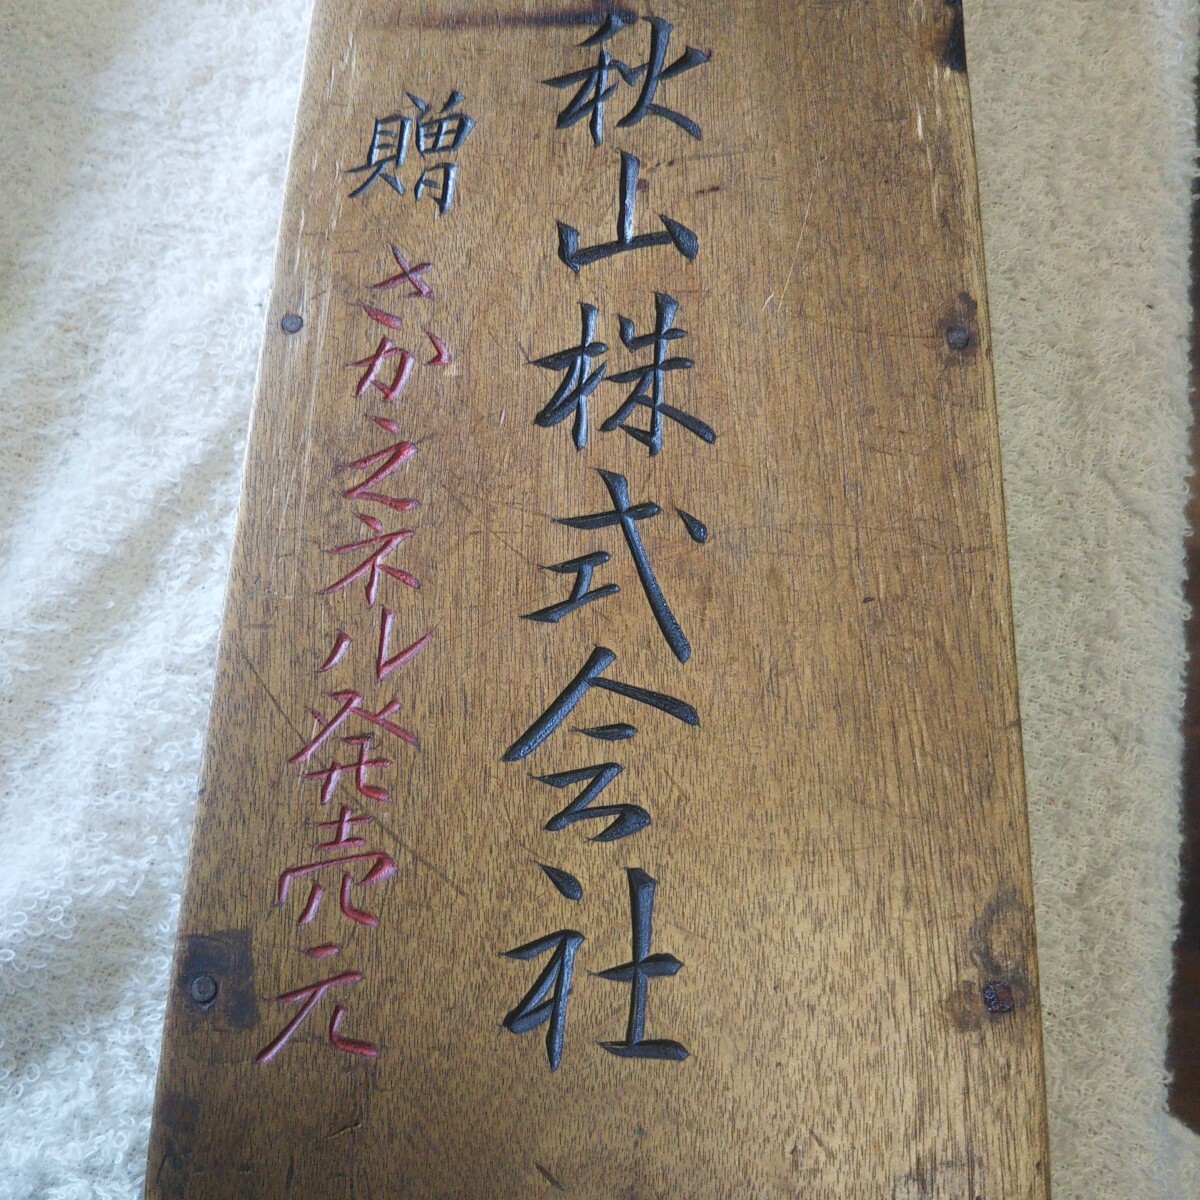 秋山株式会社
贈 さかえネル発売元